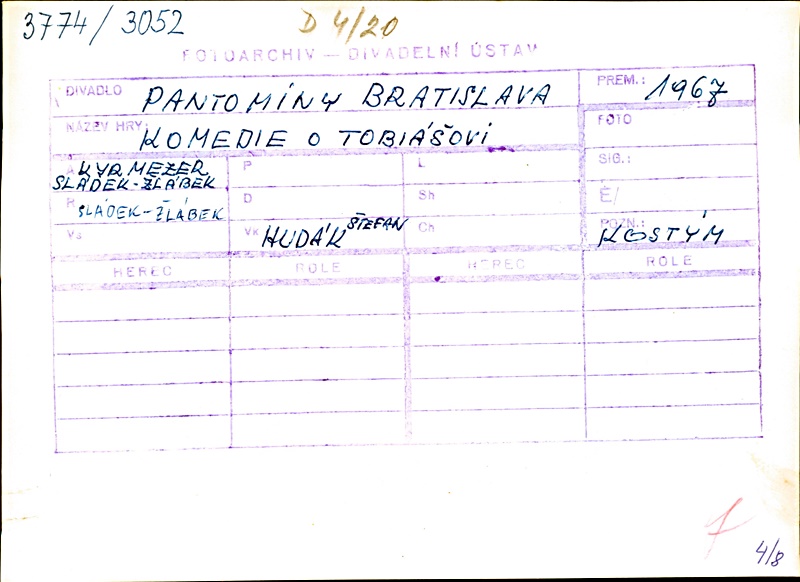 3774/3052
D 4/20
FOTOARCHIV — DIVADELNÍ ÚSTAV
DIVADLO PANTOMÍNY BRATISLAVA
PREM.: 1967
NÁZEV HRY: KOMEDIE O TOBIÁŠOVI
FOTO
A KYRMEZER
SLÁDEK-ŽLÁBEK
P
L
SIG.:
R SLÁDEK-ŽLÁBEK
D
Sh
Č/
Vs
Vk HUDÁK ŠTEFAN
Ch
POZN.: KOSTÝM
HEREC ROLE HEREC ROLE
4/8